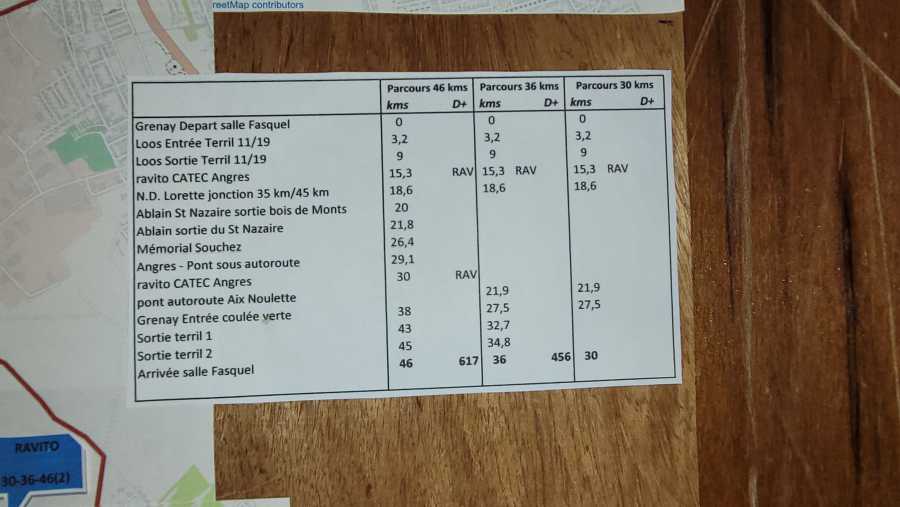 reetMap contributors
Parcours 46 kms Parcours 36 kms Parcours 30 kms
kms D+ kms D+ kms D+
Grenay Depart salle Fasquel 0 0 0
Loos Entrée Terril 11/19 3,2 3,2 3,2
Loos Sortie Terril 11/19 9 9 9
ravito CATEC Angres 15,3 RAV 15,3 RAV 15,3 RAV
N.D. Lorette jonction 35 km/45 km 18,6 18,6 18,6
Ablain St Nazaire sortie bois de Monts 20
Ablain sortie du St Nazaire 21,8
Mémorial Souchez 26,4
Angres - Pont sous autoroute 29,1
ravito CATEC Angres 30 RAV
pont autoroute Aix Noulette 21,9 21,9
Grenay Entrée coulée verte 38 27,5 27,5
Sortie terril 1 43 32,7
Sortie terril 2 45 34,8
Arrivée salle Fasquel 46 617 36 456 30
RAVITO
30-36-46(2)